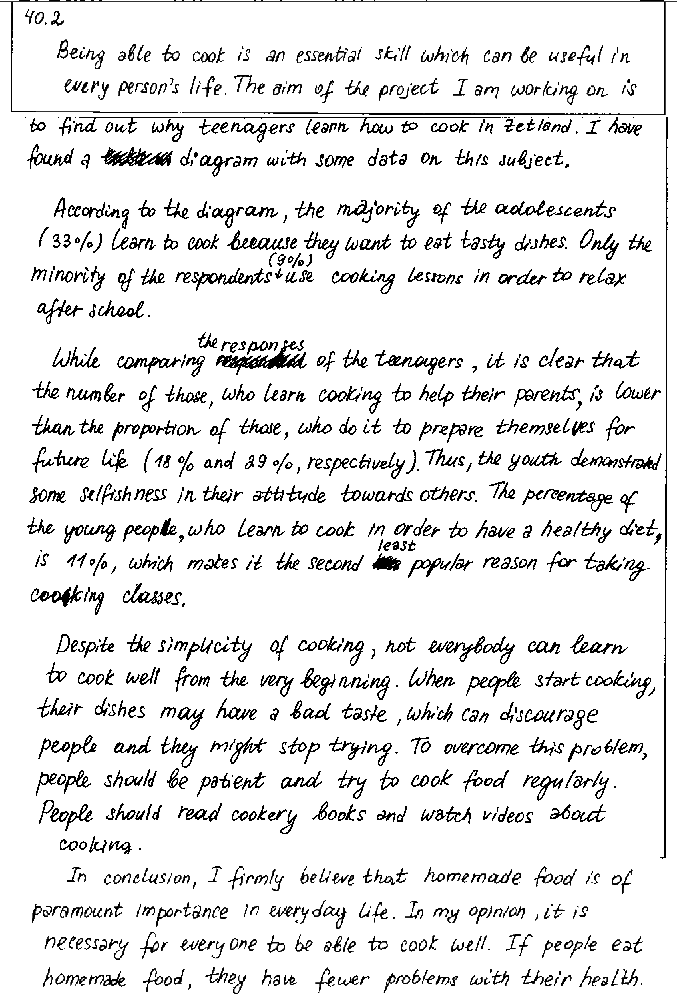 40.2
Being able to cook is an essential skill which can be useful in
every person's life. The aim of the project I am working on is
to find out why teenagers learn how to cook in Zetland. I have
found a diagram with some data on this subject.
According to the diagram, the majority of the adolescents
(33%) learn to cook because they want to eat tasty dishes. Only the
minority of the respondents (9%) use cooking lessons in order to relax
after school.
While comparing the responses of the teenagers, it is clear that
the number of those, who learn cooking to help their parents, is lower
than the proportion of those, who do it to prepare themselves for
future life (18% and 29%, respectively). Thus, the youth demonstrated
some selfishness in their attitude towards others. The percentage of
the young people, who learn to cook in order to have a healthy diet,
is 11%, which makes it the second least popular reason for taking
cooking classes.
Despite the simplicity of cooking, not everybody can learn
to cook well from the very beginning. When people start cooking,
their dishes may have a bad taste, which can discourage
people and they might stop trying. To overcome this problem,
people should be patient and try to cook food regularly.
People should read cookery books and watch videos about
cooking.
In conclusion, I firmly believe that homemade food is of
paramount importance in everyday life. In my opinion, it is
necessary for everyone to be able to cook well. If people eat
homemade food, they have fewer problems with their health.